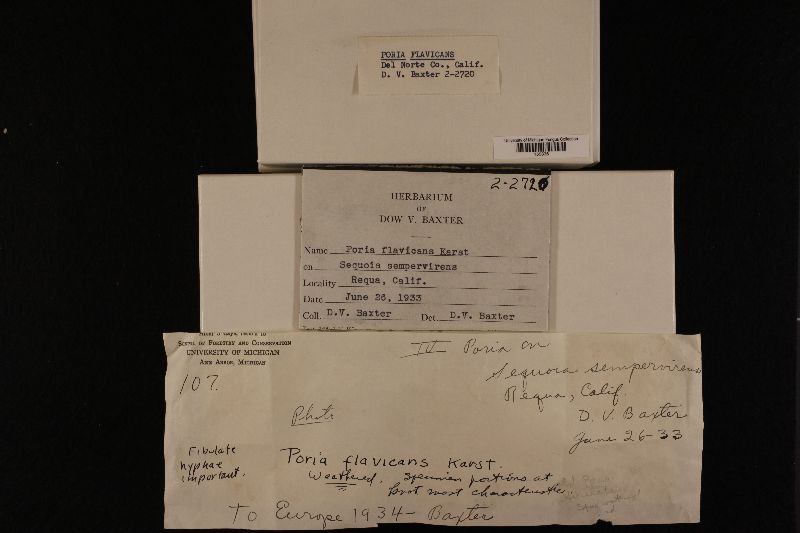 PORIA FLAVICANS
Del Norte Co., Calif.
D. V. Baxter 2-2720
University of Michigan Fungus Collection
2-2720
HERBARIUM
OF
DOW V. BAXTER
Name Poria flavicans Karst
on Sequoia sempervirens
Locality Requa, Calif.
Date June 26, 1933
Coll. D.V. Baxter Det. D.V. Baxter
School of Forestry and Conservation
UNIVERSITY OF MICHIGAN
Ann Arbor, Michigan
Poria on
Sequoia sempervirens
107.
Requa, Calif.
Photo
D. V. Baxter
June 26-33
Fibulate
hyphae
important.
Poria flavicans Karst.
Weathered. Specimen portions at
most characteristic.
To Europe 1934- Baxter